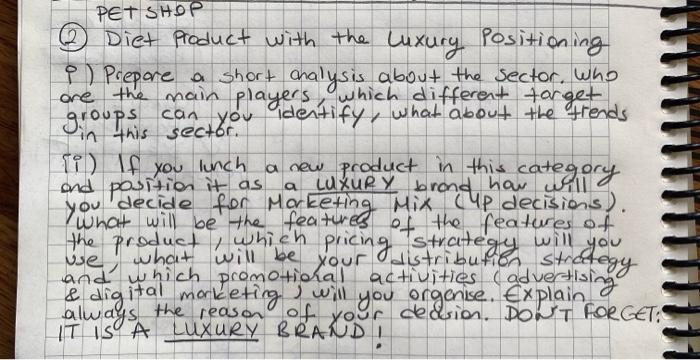 PET SHOP
② Diet Product with the Luxury Positioning
i) Prepare a short analysis about the sector. Who
are the main players, which different target
groups can you identify, what about the trends
in this sector.
ii) If you lunch a new product in this category
and position it as a LUXURY brand how will
you decide for Marketing Mix (4P decisions).
What will be the features of the features of
the product, which pricing strategy will you
use, what will be your distribution strategy
and which promotional activities (advertising
& digital marketing) will you orgenise. Explain
always the reason of your decision. DON'T FORGET:
IT IS A LUXURY BRAND!